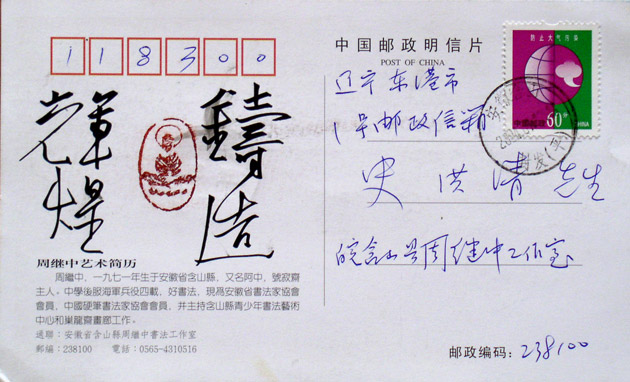 118300
中国邮政明信片
POST OF CHINA
防止大气污染
中国邮政
60分
CHINA
辽宁东港市
1号邮政信箱
史洪清先生
皖含山县周继中工作室
邮政编码：238100
鑄造
輝煌
周继中艺术简历
周継中，一九七一年生于安徽省含山縣，又名阿中，號寂齋
主人。中學後服海軍兵役四載，好書法，現爲安徽省書法家協會
會員，中國硬筆書法家協會會員，并主持含山縣青少年書法藝術
中心和巢龍齋畫廊工作。
通聯：安徽省含山縣周継中書法工作室
郵編：238100 電話：0565-4310516